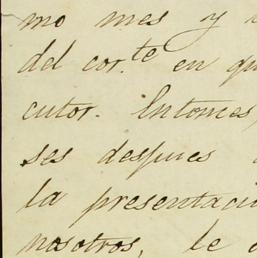 mo mes y
del cor.te en qu
cutor. Entonces,
ses despues
la presentaci
nosotros, le